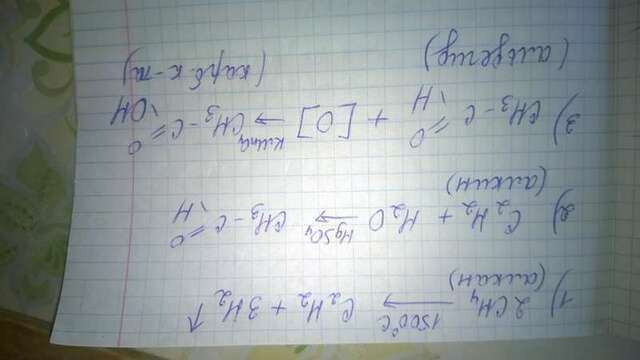 1) 2CH₄ —1500°C→ C₂H₂ + 3H₂ ↑
(алкан)
2) C₂H₂ + H₂O —HgSO₄→ CH₃ – C = O \ H
(алкин)
3) CH₃ – C = O \ H + [O] —кипяч→ CH₃ – C = O \ OH
(альдегид) (карб к-та)